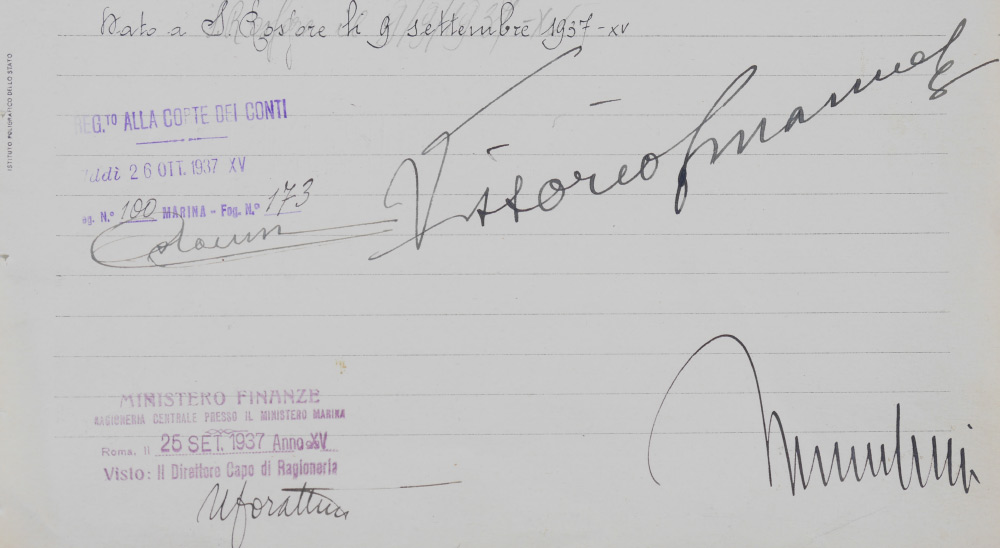 Dato a S. Rossore li 9 settembre 1937-XV
ISTITUTO POLIGRAFICO DELLO STATO
REG.TO ALLA CORTE DEI CONTI
Addì 26 OTT. 1937 XV
Reg. N.º 100 MARINA - Fog. N.º 173
Vittorio Emanuele
MINISTERO FINANZE
RAGIONERIA CENTRALE PRESSO IL MINISTERO MARINA
Roma, li 25 SET. 1937 Anno XV
Visto: Il Direttore Capo di Ragioneria
Mussolini